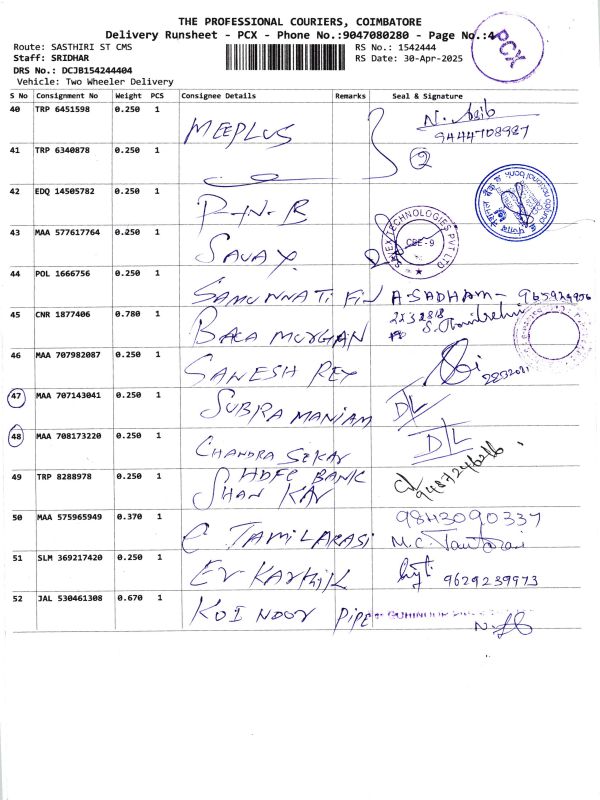 THE PROFESSIONAL COURIERS, COIMBATORE
Delivery Runsheet - PCX - Phone No.:9047080280 - Page No.:4
PCX
Route: SASTHIRI ST CMS
RS No.: 1542444
Staff: SRIDHAR
RS Date: 30-Apr-2025
DRS No.: DCJB154244404
Vehicle: Two Wheeler Delivery
S No Consignment No Weight PCS Consignee Details Remarks Seal & Signature
40 TRP 6451598 0.250 1 MEEPLUS
9444708987
41 TRP 6340878 0.250 1 2
42 EDQ 14505782 0.250 1 P-N-B
43 MAA 577617764 0.250 1 SAVAX
TECHNOLOGIES PVT LTD
CBE-9
44 POL 1666756 0.250 1 SAMUNNATI FIN A-SADHAM-
45 CNR 1877406 0.780 1 BALA MURGHAN
46 MAA 707982087 0.250 1 GANESH REY
47 MAA 707143041 0.250 1 SUBRAMANIAM D/L
48 MAA 708173220 0.250 1 CHANDRA SEKAR D/L
HDFC BANK
49 TRP 8288978 0.250 1 SHAN KAR 9487246216
50 MAA 575965949 0.370 1 C TAMILARASI 9843090337
51 SLM 369217420 0.250 1 ER KARTHIK 9629239973
52 JAL 530461308 0.670 1 KOI NOOR PIPE